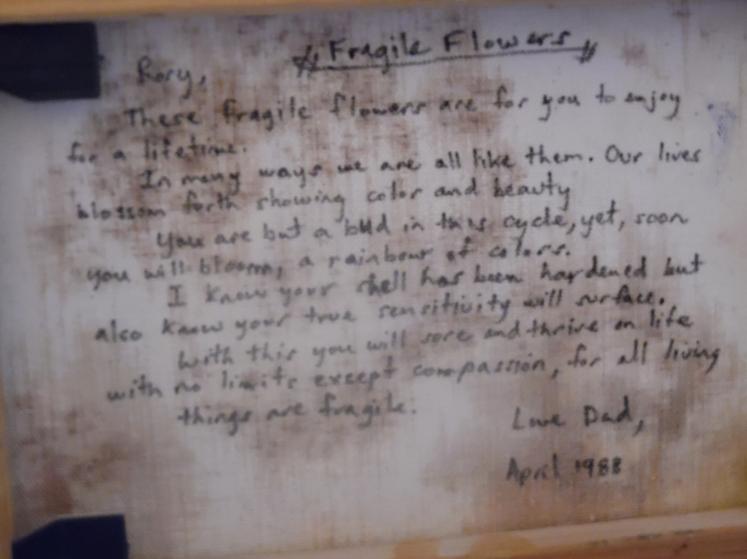 "Fragile Flowers"
Rory,
These fragile flowers are for you to enjoy
for a lifetime.
In many ways we are all like them. Our lives
blossom forth showing color and beauty
You are but a bud in this cycle, yet, soon
you will bloom, a rainbow of colors.
I know your shell has been hardened but
also know your true sensitivity will surface.
With this you will sore and thrive on life
with no limits except compassion, for all living
things are fragile.
Love Dad,
April 1988